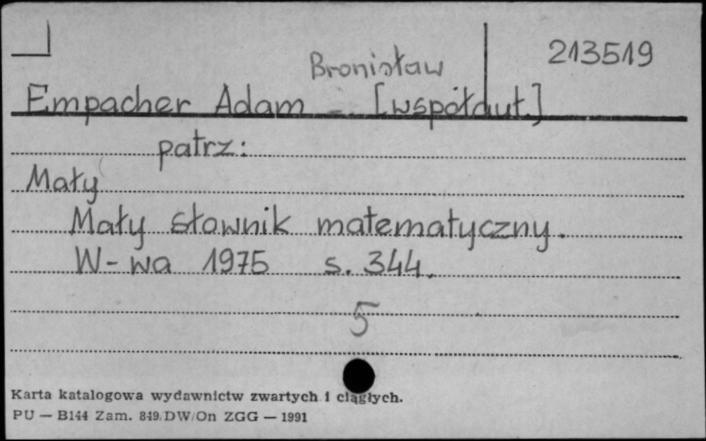 213519
Bronisław
Empacher Adam - [współaut.]
patrz:
Mały
Mały słownik matematyczny.
W-wa 1975 s. 344.
5
Karta katalogowa wydawnictw zwartych i ciągłych.
PU — B144 Zam. 849/DW/On ZGG — 1991